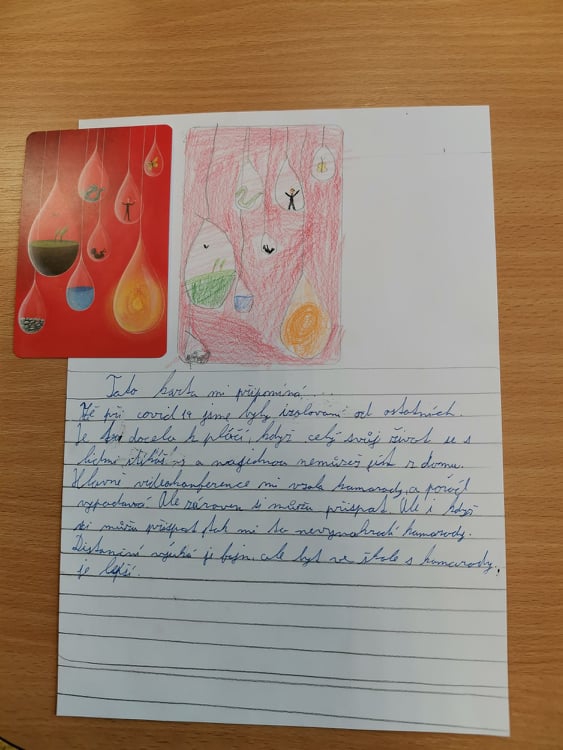 Tato karta mi připomíná....
Že při covid 19 jsme byly izolovaní od ostatních.
Je to docela k pláči, když celý svůj život se s
lidmi stíkáš a najednou nemůžeš jít z domu.
Hlavne videokonference mi vzala kamarady, a poráď
vypadává. Ale zároven si můžu přispat. Ale i když
si můžu přispat tak mi to nevynahradí kamarády.
Distanční výuka je fajn, ale byt ve škole s kamarady,
je lepší.